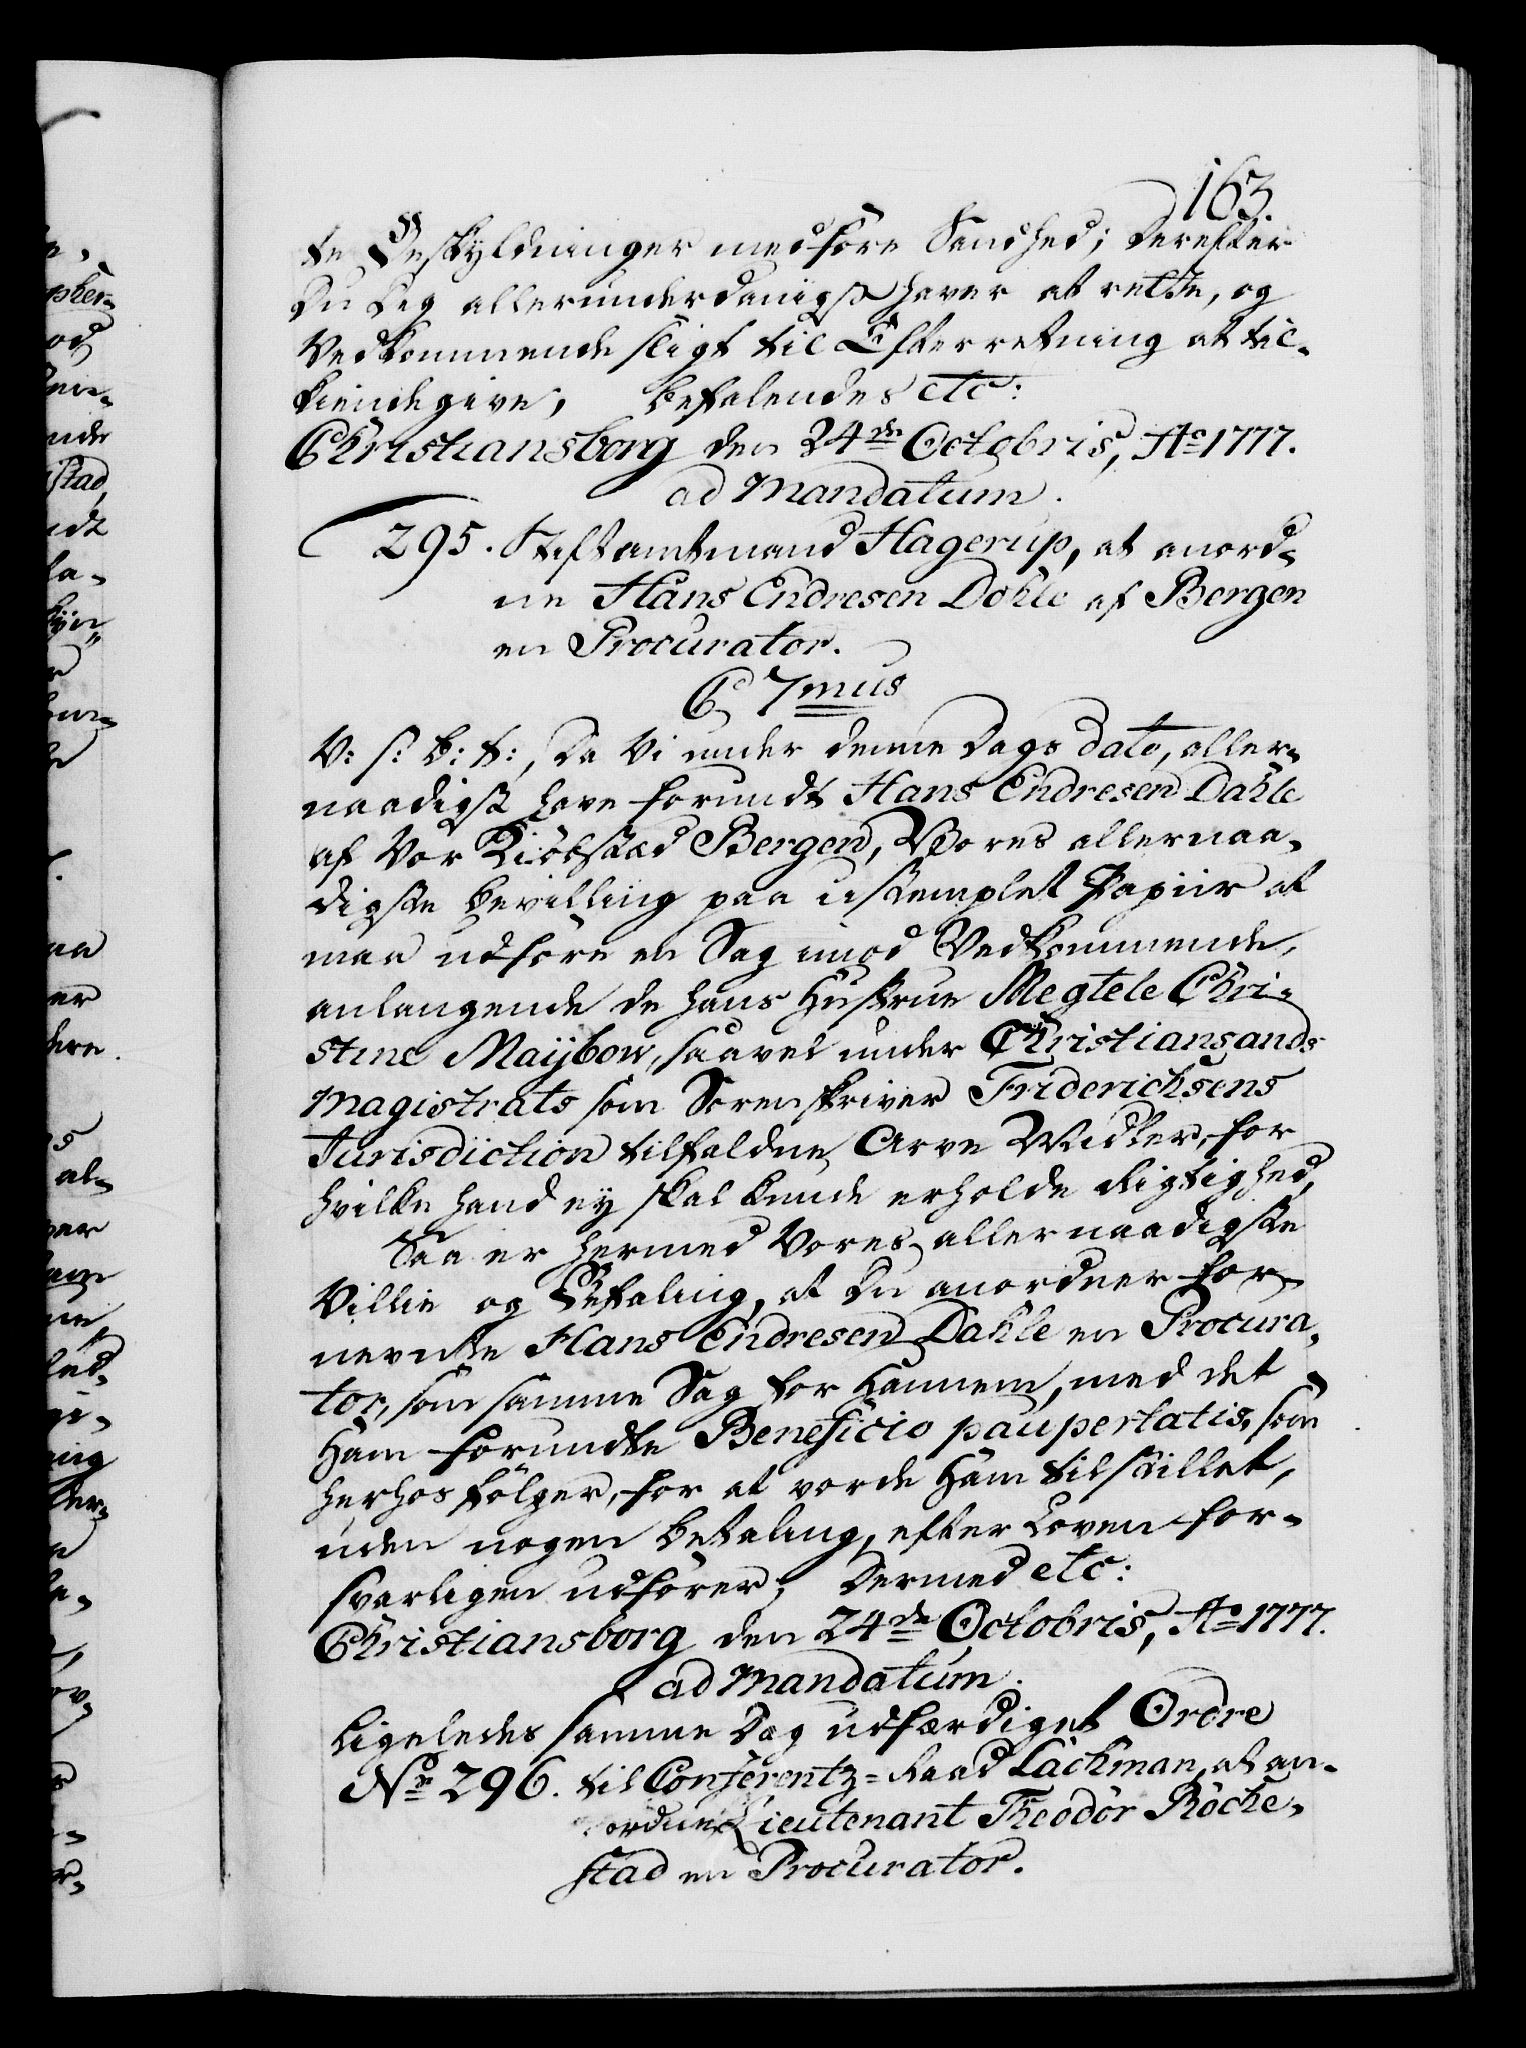 163.
te Beskyldninger medføre Sandhed; Derefter
Du Dig allerunderdanigst haver at rette, og
Vedkommende sligt til Efterretning at til-
kiendegive, Befalendes etc:
Christiansborg den 24de Octobris, Ao 1777.
ad Mandatum.
295. Stiftamtmand Hagerup, at anord-
ne Hans Endresen Dahle af Bergen
en Procurator.
C 7mus
V: s: b: t:, Da Vi under denne Dags Dato, aller-
naadigst have forundt Hans Endresen Dahle
af Vor Kiøbstæd Bergen, Vores allernaa-
digste bevilling paa ustemplet Papiir at
maa udføre en Sag imod Vedkommende,
anlangende de hans Hustrue Megtele Chri-
stine Maijbow, saavel under Christiansands
Magistrats som Sorenskriver Friderichsens
Jurisdiction tilfaldne Arve Midler, for
hvilke hand ey skal kunde erholde Rigtighed,
Saa er hermed Vores allernaadigste
Villie og Befaling, at Du anordner for-
nevnte Hans Endresen Dahle en Procura-
tor, som samme Sag for Hannem, med det
Ham forundte Beneficio paupertatis, som
herhos følger, for at vorde Ham tilstillet,
uden nogen betaling, efter Loven for-
svarligen udfører; Dermed etc:
Christiansborg den 24de Octobris, Ao 1777.
ad Mandatum.
Ligeledes samme Dag udfærdiget Ordre
No 296. til Conferentz-Raad Lachman, at an-
ordne Lieutenant Theodor Röche-
stad en Procurator.